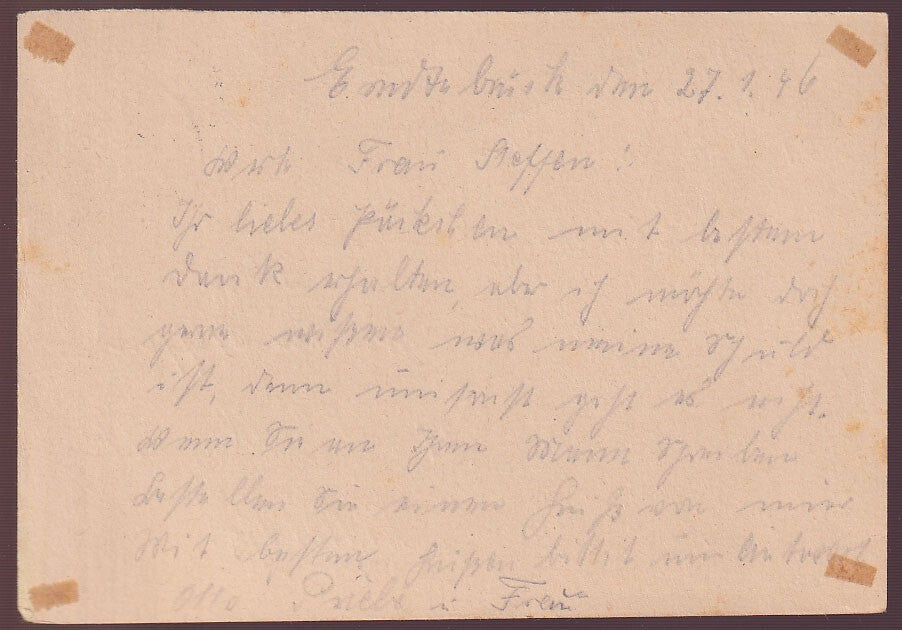 Erndtebrück den 27.1.46
Werte Frau Steffen!
Ihr liebes Päckchen mit bestem
Dank erhalten, aber ich möchte doch
gerne wissen was meine Schuld
ist, denn umsonst geht es nicht.
Wenn Sie an Ihren Mann schreiben
bestellen Sie einen Gruß von mir
Mit besten Grüßen bittet um Antwort
Otto u Frau